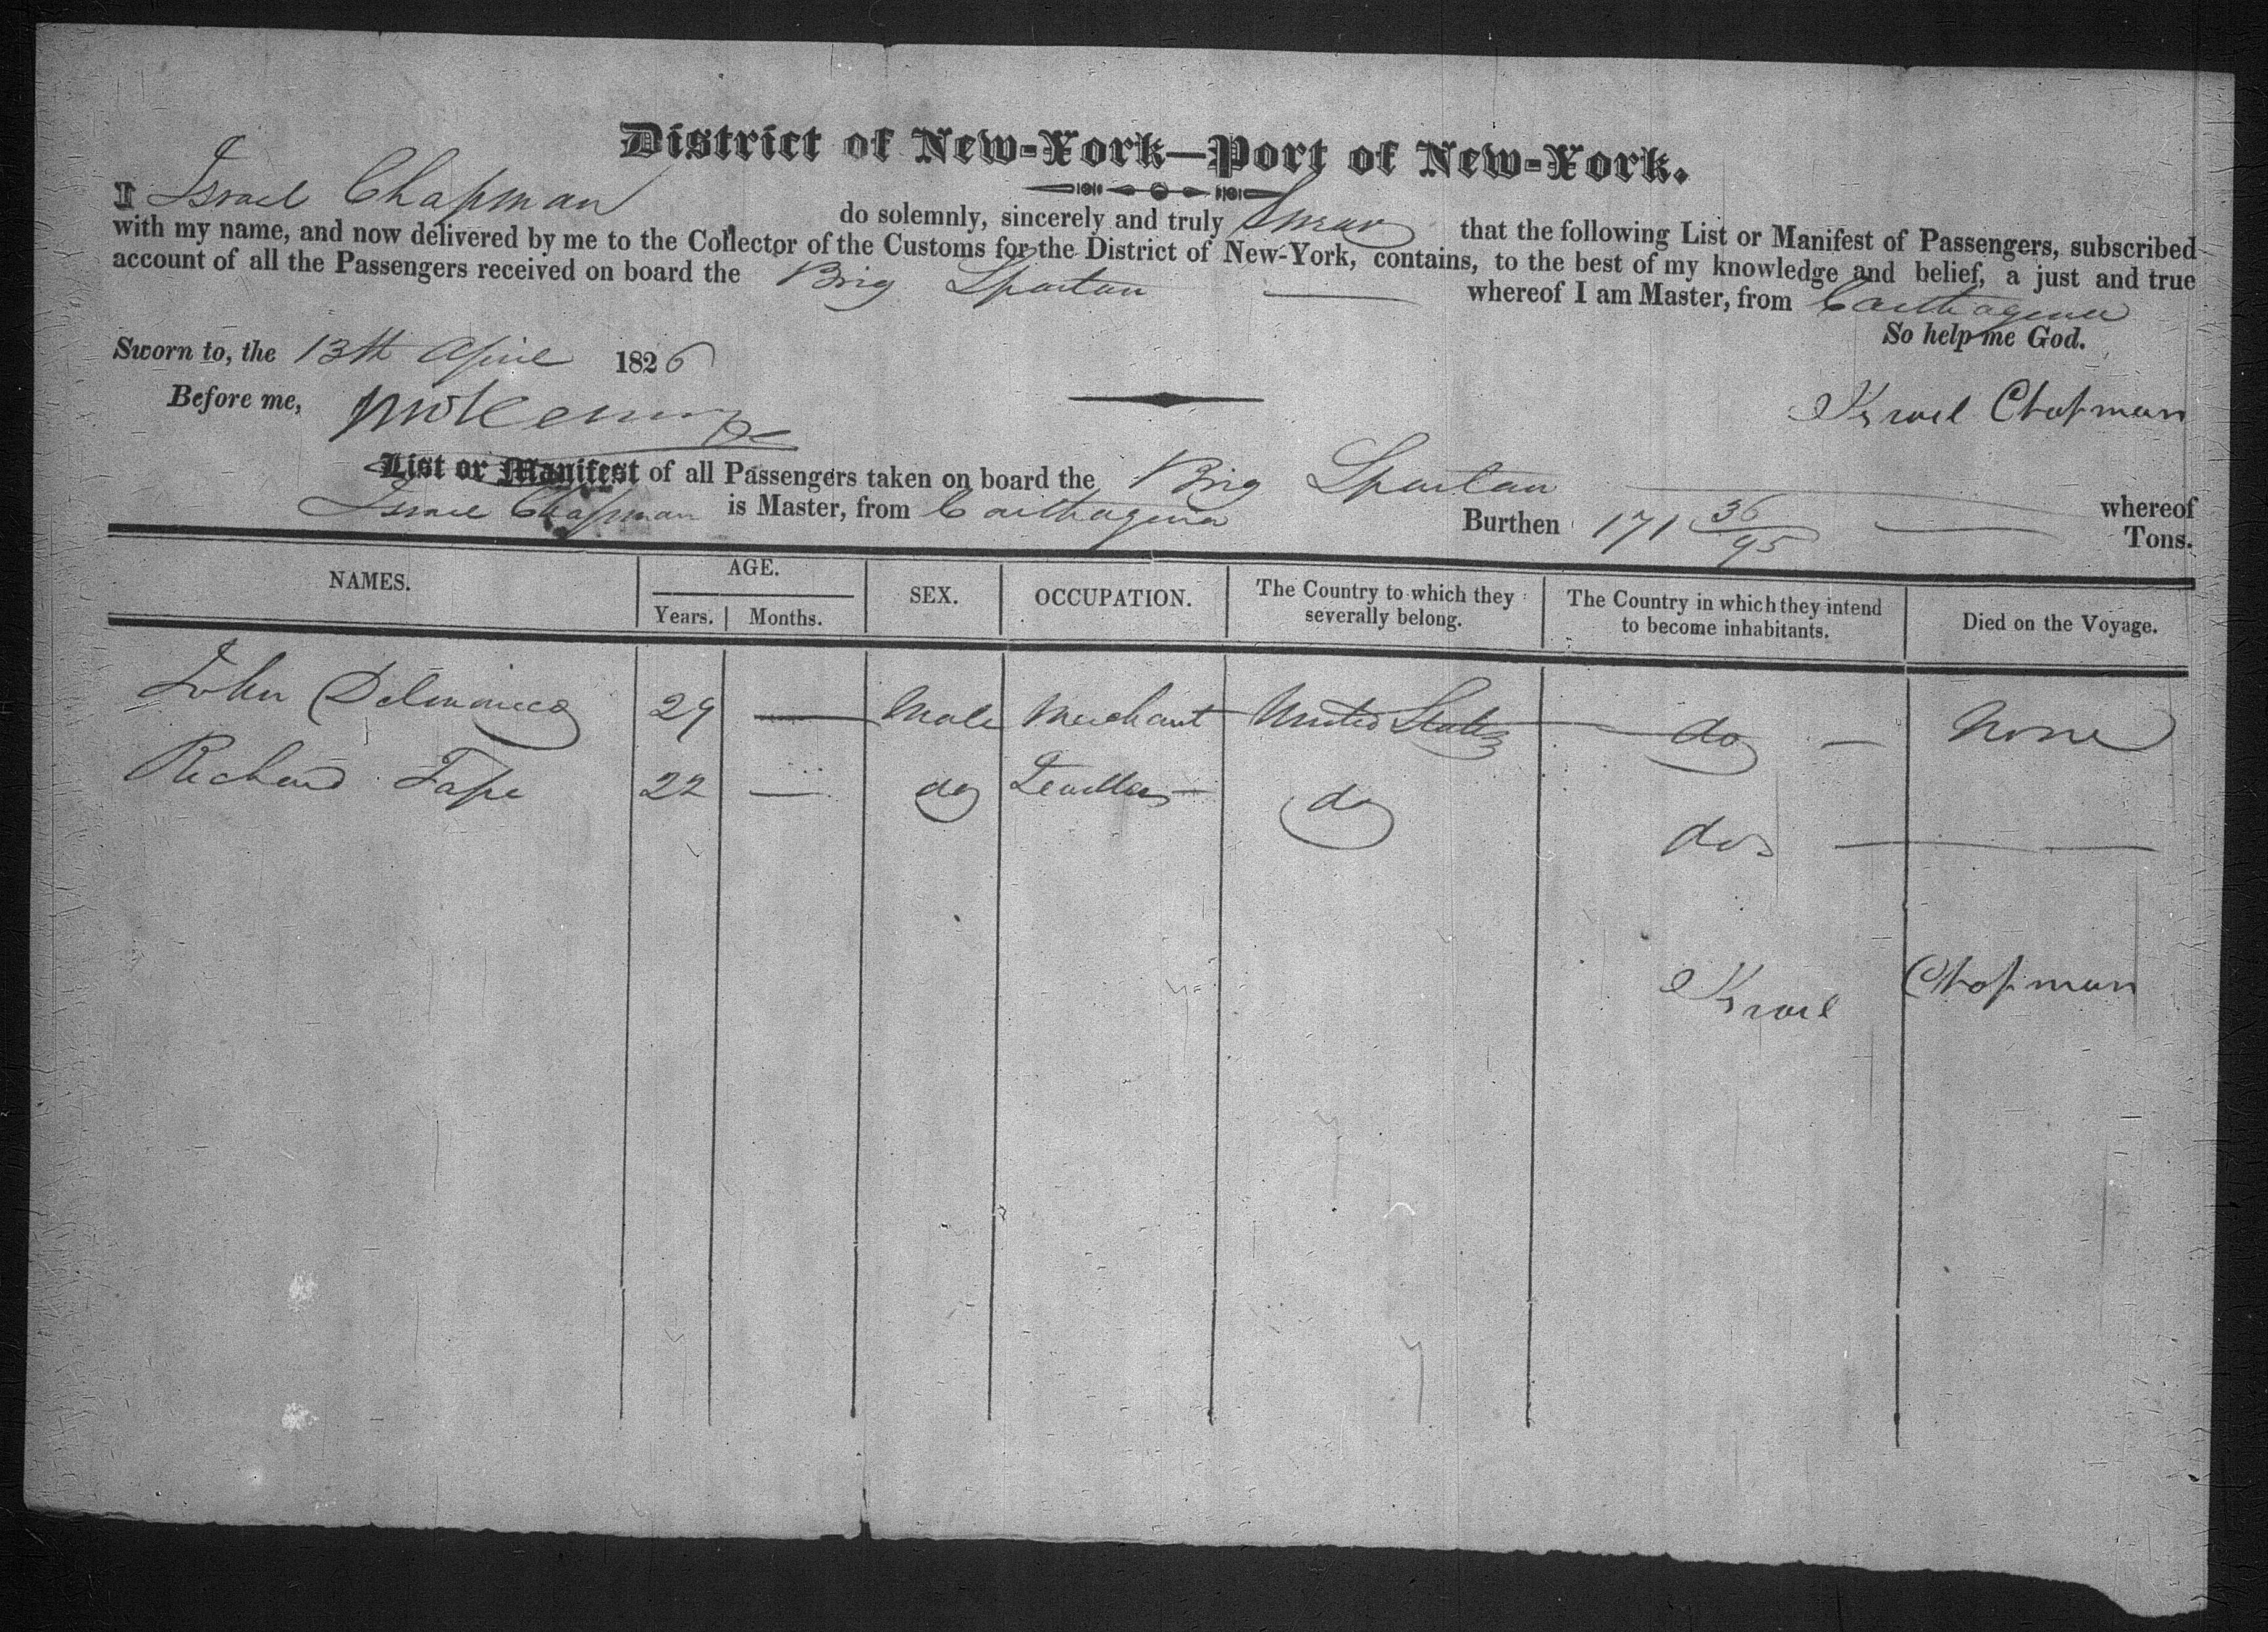 District of New-York—Port of New-York.
I Israel Chapman do solemnly, sincerely and truly Swear that the following List or Manifest of Passengers, subscribed
with my name, and now delivered by me to the Collector of the Customs for the District of New-York, contains, to the best of my knowledge and belief, a just and true
account of all the Passengers received on board the Brig Spartan whereof I am Master, from Carthagena
So help me God.
Sworn to, the 13th April 1826
Before me,
Israel Chapman
List or Manifest of all Passengers taken on board the Brig Spartan whereof
Israel Chapman is Master, from Carthagena Burthen 171 36/95 Tons.
NAMES. AGE. Years. Months. SEX. OCCUPATION. The Country to which they severally belong. The Country in which they intend to become inhabitants. Died on the Voyage.
John 29 — Male Merchant United States do — None
Richard 22 — do do do —
Israel Chapman